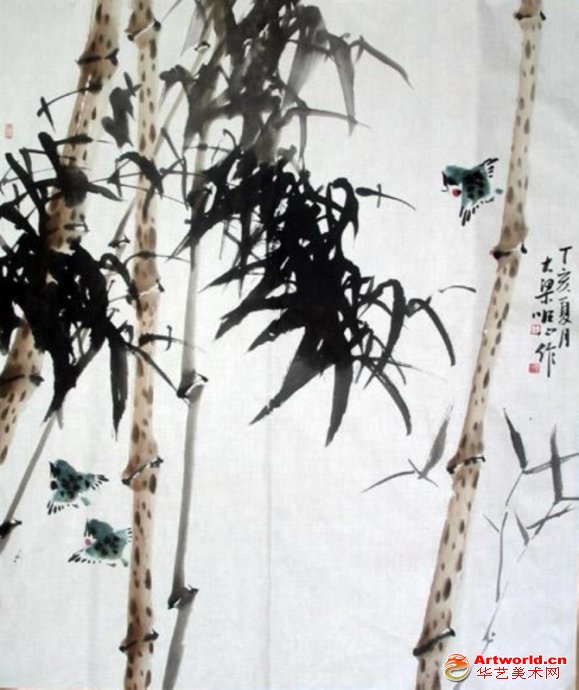 丁亥夏月
大梁
作
Artworld.cn
华艺美术网